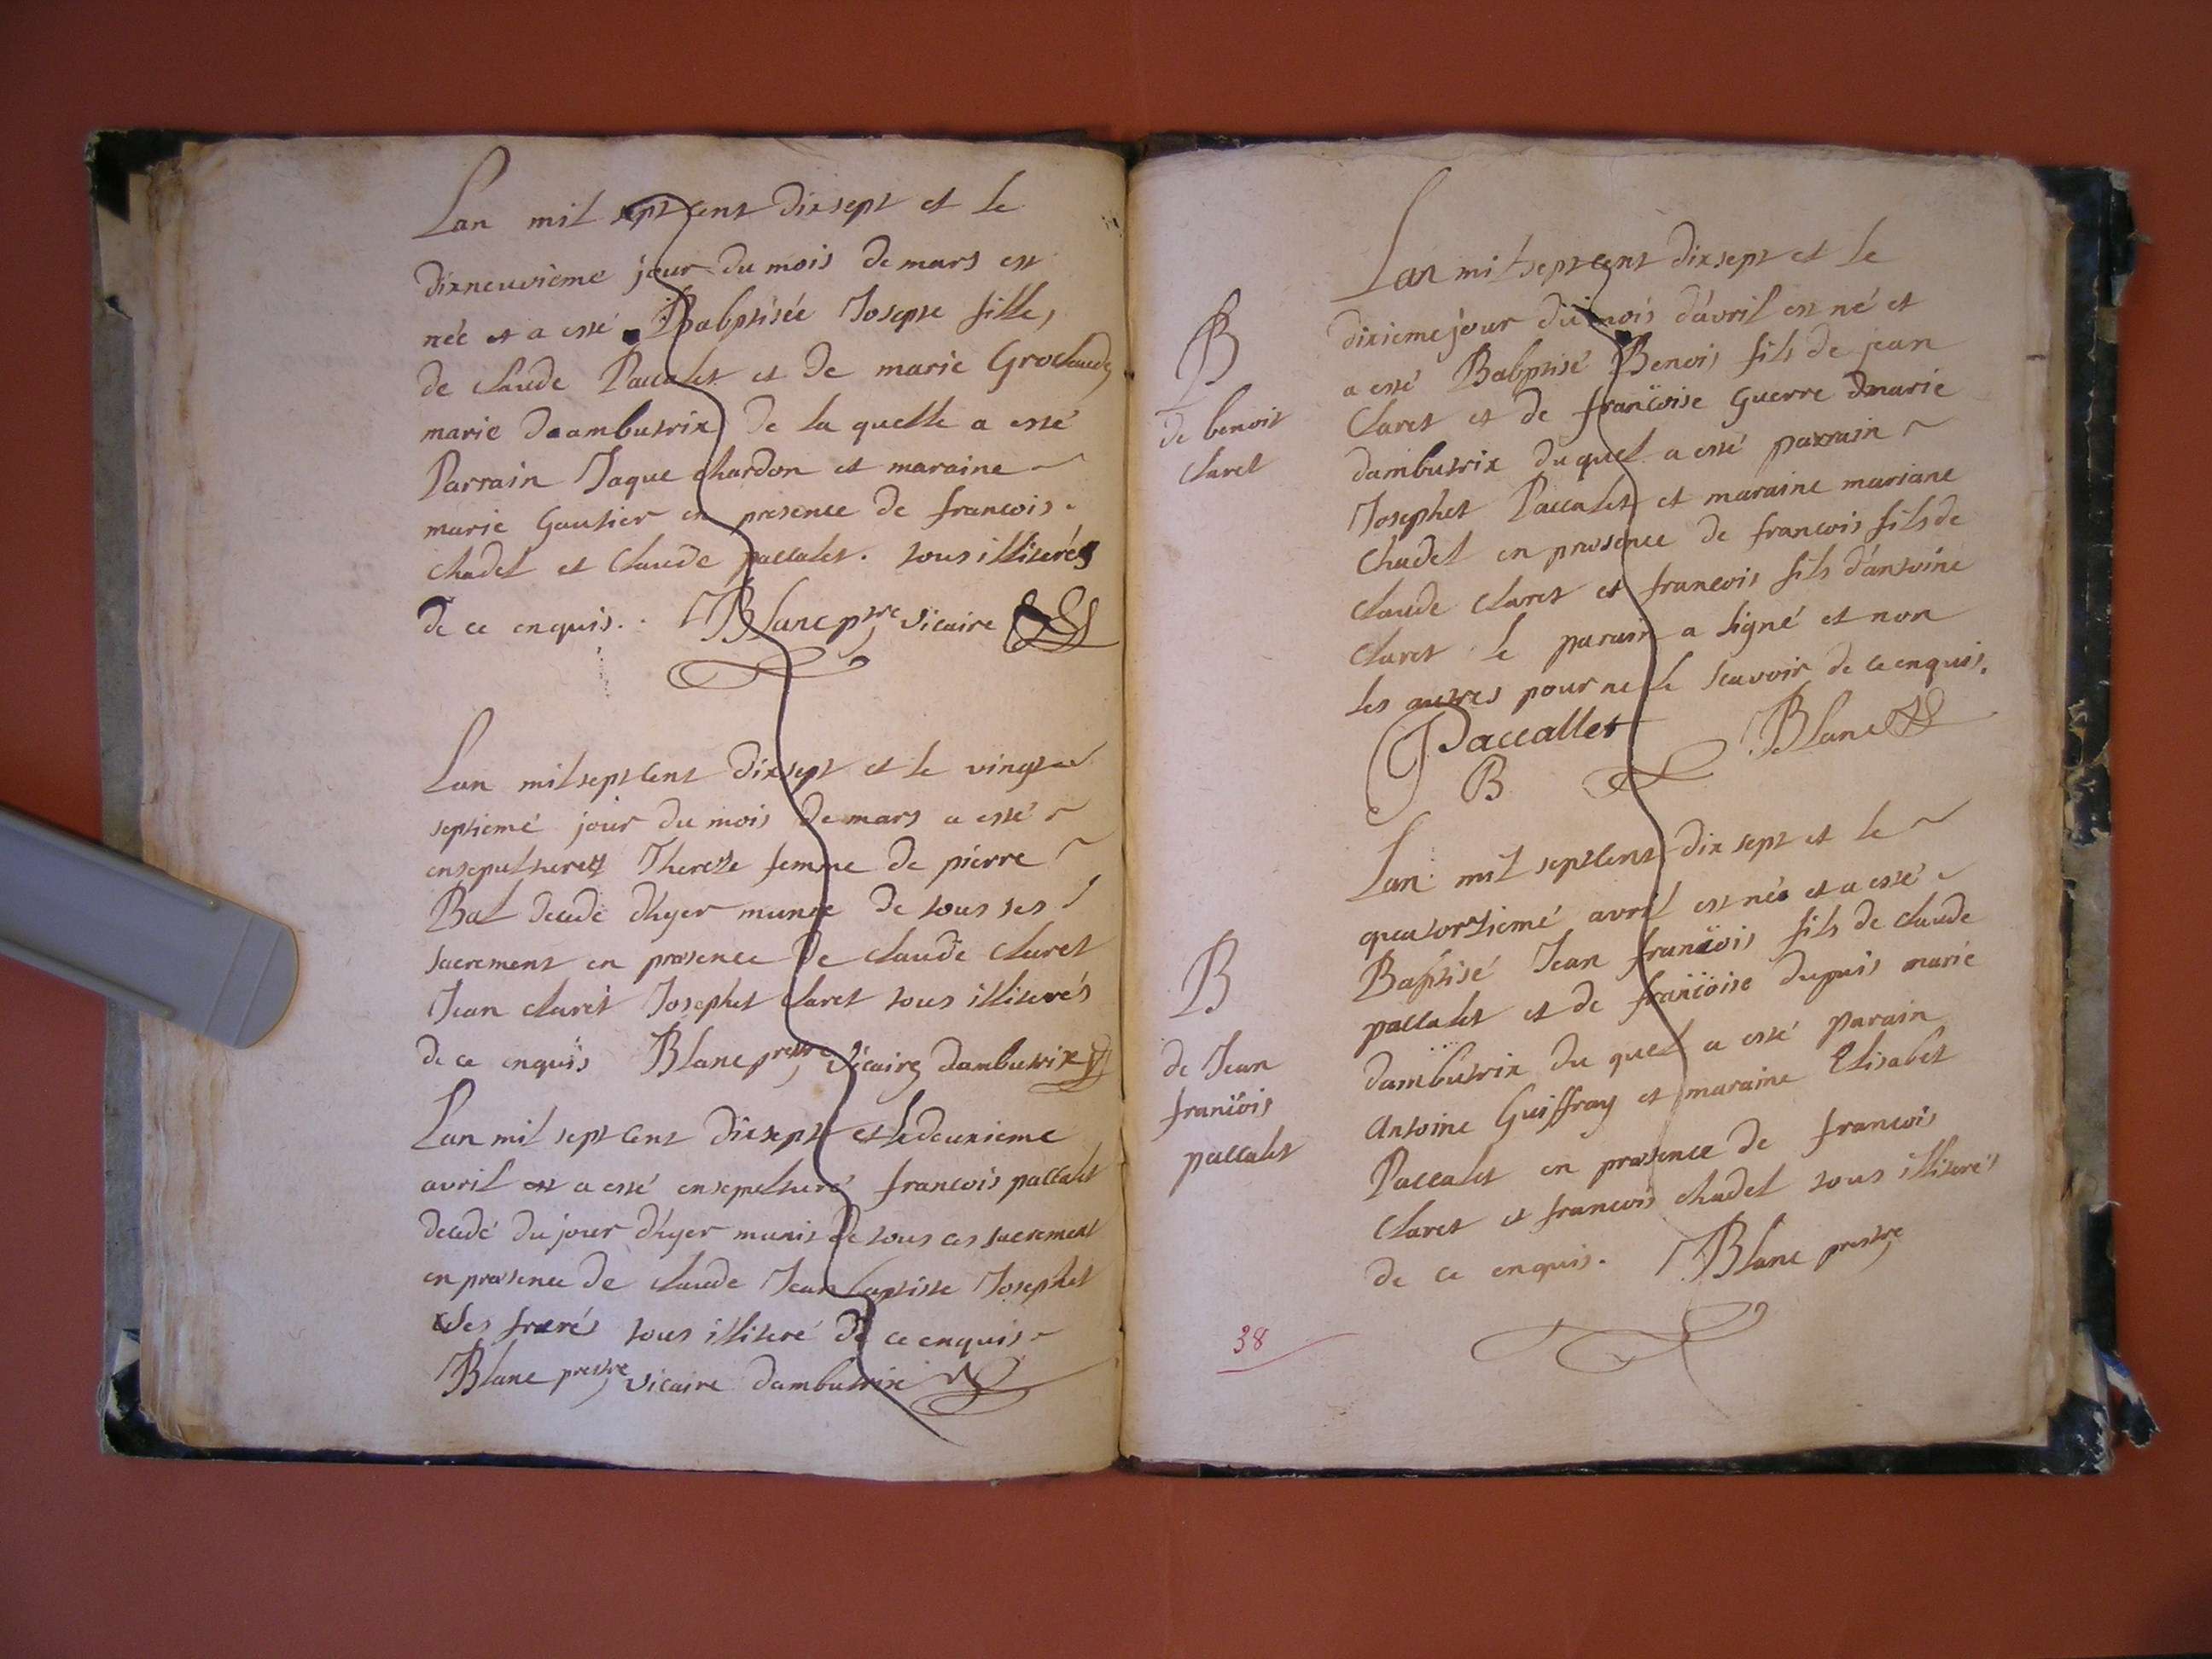 Lan mil sept cent dixsept et le
dixneuvieme jour du mois de mars est
née et a esté Babptisée Josepte fille,
de Claude Paccalet et de marie Groclaude
marie daambutrix de la quelle a esté
Parrain Jaque chardon et maraine
marie Gautier en presence de francois.
chadel et Claude paccalet. tous illiterés
de ce enquis.. Blanc ptre vicaire
Lan mil sept Cent dixsept et le vingt
septiemé jour du mois de mars a esté
ensepulturet Therese femme de pierre
Bal decede d'hyer munie de tous ses
sacrement en presence de claude Claret
Jean claret Josephet claret tous illiterés
de ce enquis Blanc prestre Vicaire dambutrix
Lan mil sept Cent dixsept et le deuxieme
avril a esté ensepulturé francois paccalet
decedé du jour d'hyer munis de tous ces sacrement
en presence de claude Jean baptiste Josephet
ses frerés tous illiteré de ce enquis
Blanc prestre vicaire dambutrix
B
de benoit
Claret
Lan mil sept cent dixsept et le
dixieme jour du mois d'avril est né et
a esté Babptisé Benois fils de jean
Claret et de francoise Guerre dmarie
dambutrix du quel a esté parrain
Josephet Paccalet et maraine mariane
Chadel en presence de francois fils de
claude claret et francois fils d'antoine
Claret le parain a signé et non
les autres pour ne le scavoir de ce enquis.
J Paccallet Blanc
B
B
de Jean
francois
paccalet
Lan mil sept Cent dix sept et le
quatorziemé avril est nés et a esté
Baptisé Jean francois fils de claude
paccalet et de francoise dupuis marié
dambutrix du quel a esté parain
Antoine Guiffray et maraine Elisabet
Paccalet en presence de francois
Claret et francois chadel tous illiterés
de ce enquis. Blanc prestre
38